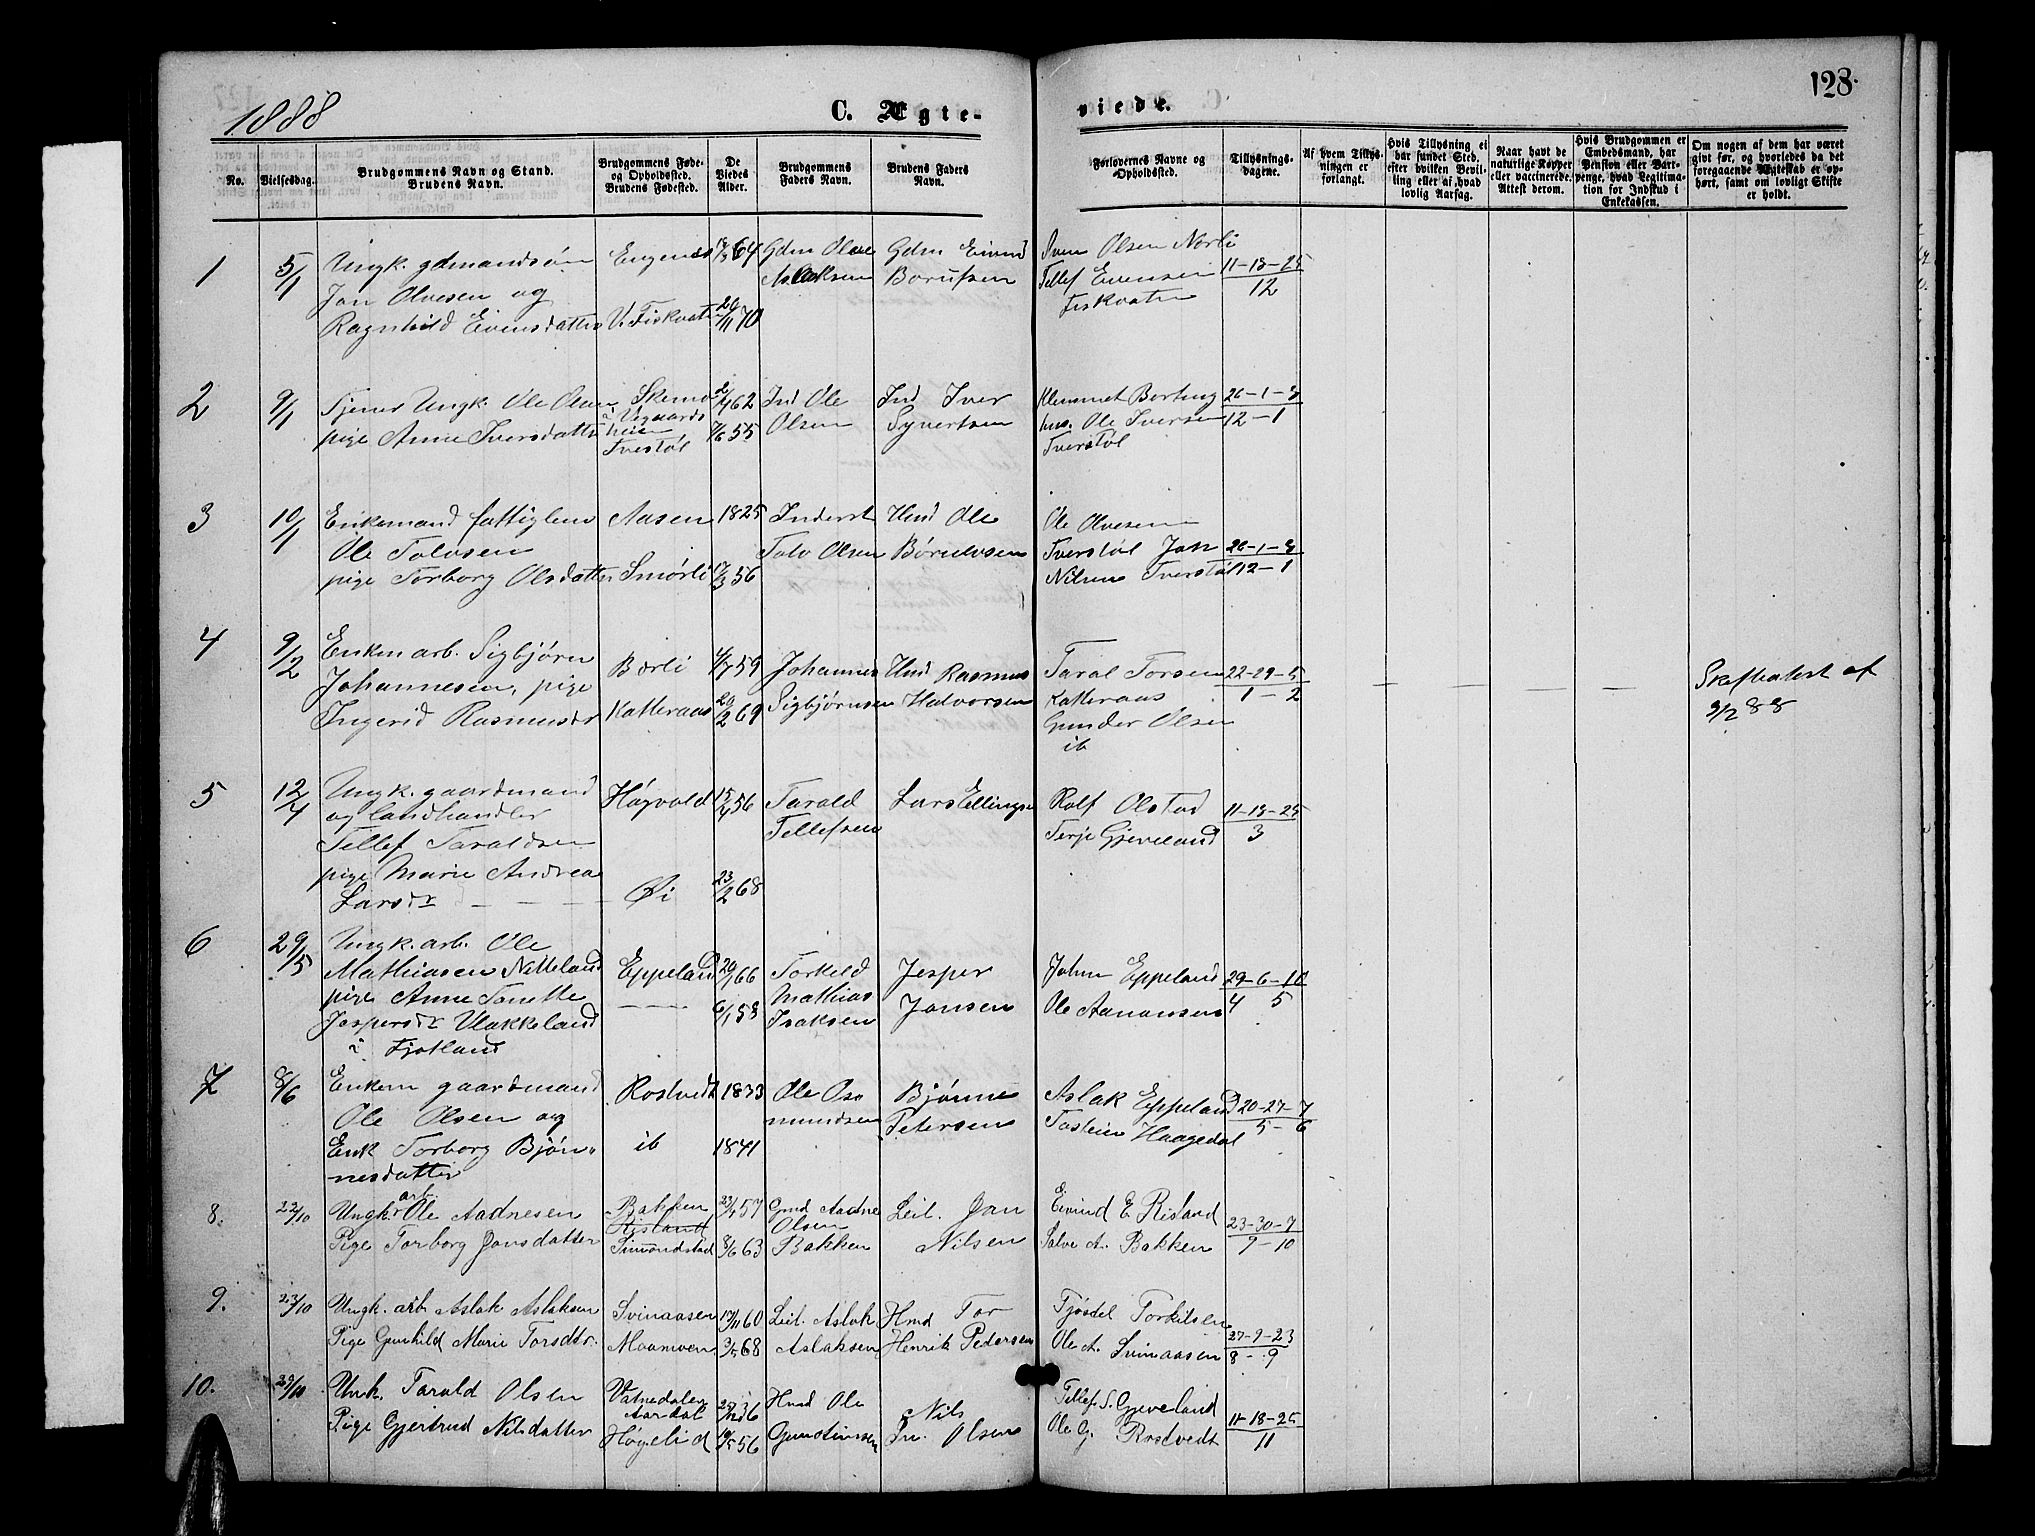 1888
C. Ægte-
viede.
128.
No.
Vielsesdag.
Brudgommens Navn og Stand.
Brudens Navn.
Brudgommens Føde-
og Opholdssted.
Brudens Fødested.
De
Viedes
Alder.
Brudgommens
Faders Navn.
Brudens Faders
Navn.
Forlovernes Navne og
Opholdssted.
Tillysnings-
dagene.
Af hvem Tillys-
ningen er
forlangt.
Hvis Tillysning ei
har fundet Sted,
efter hvilken Bevil-
ling eller af hvad
lovlig Aarsag.
Naar havt de
naturlige Kopper
eller vaccinerede.
Attest derom.
Hvis Brudgommen er
Embedsmand, har
Pension eller Vart-
penge, hvad Legitima-
tion for Indskud i
Enkekassen.
Om nogen af dem har været
givt før, og hvorledes da det
foregaaende Ægteskab er op-
hørt, samt om lovligt Skifte
er holdt.
1
5/1
Ungk. gdmandssøn
Jan Olvesen og
Ragnhild Eivensdatter
V. Fiskvatn
64
20/11 70
Gdm Olve
Aslaksen
Gdm Eivind
Borufsen
Sven Olsen Norli
Tellef Evensen
Fiskvatn
11-18-25
12
2
9/1
Tjener Ungk. Ole Olsen
pige Anne Iversdatter
i Vegaards
heien
Tverstøl
62
7/6 55
Ind Ole
Olsen
Ind Iver
Syvertsen
hus. Ole Iversen
Tverstøl
26-1-8
12-1
3
10/1
Enkemand fattiglem
Ole Tolvsen
pige Torborg Olsdatter
Aasen
Smørli
1825
17/3 56
Inderst
Tolv Olsen
Hmd Ole
Ole Olvesen
Tverstøl Jan
Nilsen Tverstøl
26-1-8
12-1
4
9/2
Enkm arb. Sigbjørn
Johannesen, pige
Ingerid Rasmusdr
Bærli
Katteraas
4/7 59
20/2 69
Johannes
Sigbjørnsen
Hmd Rasmus
Halvorsen
Taral Torsen
Katteraas
Gunder Olsen
ib
22-29-5
1-2
Skifteatest af
3/2 88
5
12/4
Ungk. gaardmand
og landhandler
Tellef Taraldsen
pige Marie Andrea
Larsdr
Høgvold
Øi
15/4 56
23/2 68
Tarald
Tellefsen
Lars Ellingsen
Rolf Olstad
Terje Gjeveland
11-18-25
3
6
29/5
Ungk. arb. Ole
Mathiasen Netteland
pige Anne Tonette
Jespersdr Vlakkeland
i Fjotland
Eppeland
20/1 66
6/1 58
Torkild
Mathias
Isaksen
Jesper
Jansen
John Eppeland
Ole Aanonsen
29-6-10
4 5
7
8/6
Enkem gaardmand
Ole Olsen og
Enk Torborg Bjøn-
nesdatter
Rostvedt
ib
1833
1841
Ole Os-
mundsen
Bjønne
Petersen
Aslak Eppeland
Tosteien Haagedal
20-27-7
5-6
8.
22/10
Ungk. arb. Ole Aadnesen
Pige Torborg Jansdatter
Bakken
Risland
Simonstad
23/7 57
8/6 63
Gmd Aadne
Olsen
Bakken
Leil. Jan
Nilsen
Eivind E. Risland
Salve A. Bakken
23-30-7
9-10
9.
23/10
Ungk. arb. Aslak Aslaksen
Pige Gunhild Marie Torsdtr.
Svinaasen
Moamoen
17/11 60
3/5 68
Leil. Aslak
Aslaksen
Hmd Tor
Henrik Pedersen
Tjøstel Torkilsen
Ole A. Svinaasen
27-9-23
8-9
10.
29/10
Unk. Tarald Olsen
Pige Gjertrud Nilsdatter
Vatnedalen
Aardal
Høgelid
36
56
Hmd Ole
Gundersen
Nils
Olsen
Tellef S. Gjeveland
Ole G. Rostvedt
11-18-25
11